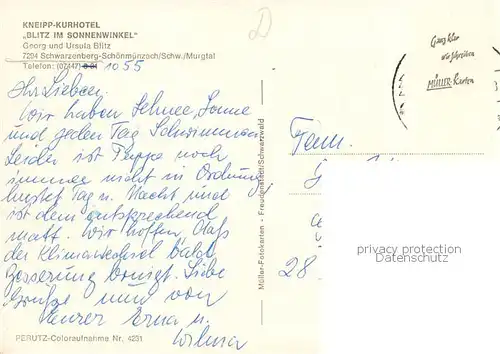 KNEIPP-KURHOTEL
„BLITZ IM SONNENWINKEL"
Georg und Ursula Blitz
7294 Schwarzenberg-Schönmünzach/Schw./Murgtal
Telefon: (07447) 1055
Ihr Lieben.
Wir haben Schnee, Sonne
und jeden Tag Schwimmen
Leider ist Pappa noch
immer nicht in Ordnung
hustet Tag u. Nacht und
ist dem entsprechend
matt. Wir hoffen, daß
der Klimawechsel bald
Besserung bringt. Liebe
Grüße nun von
Erna u.
PERUTZ-Coloraufnahme Nr. 4231
Müller-Fotokarten - Freudenstadt/Schwarzwald
Ganz klar
wir schreiben
MÜLLER-Karten
Fam.
28
privacy protection
Datenschutz